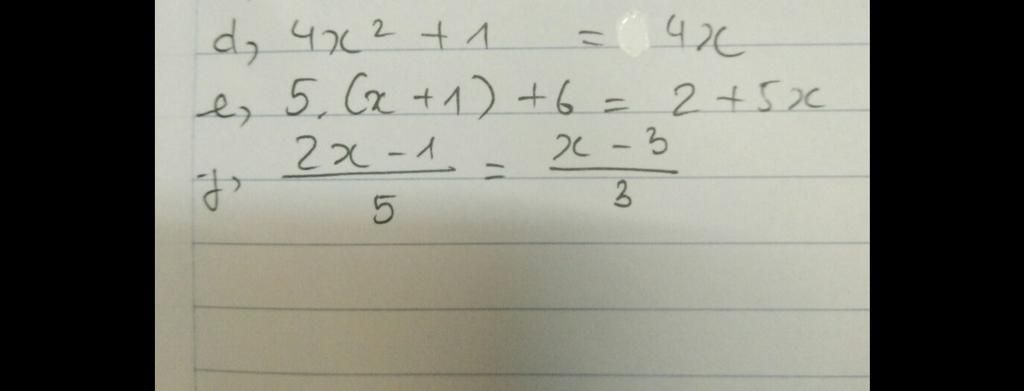 d, 4x² + 1 = 4x
e, 5.(x + 1) + 6 = 2 + 5x
f, (2x - 1)/5 = (x - 3)/3